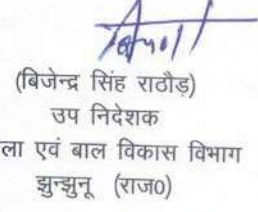 (बिजेन्द्र सिंह राठौड़)
उप निदेशक
ला एवं बाल विकास विभाग
झुन्झुनू (राज0)